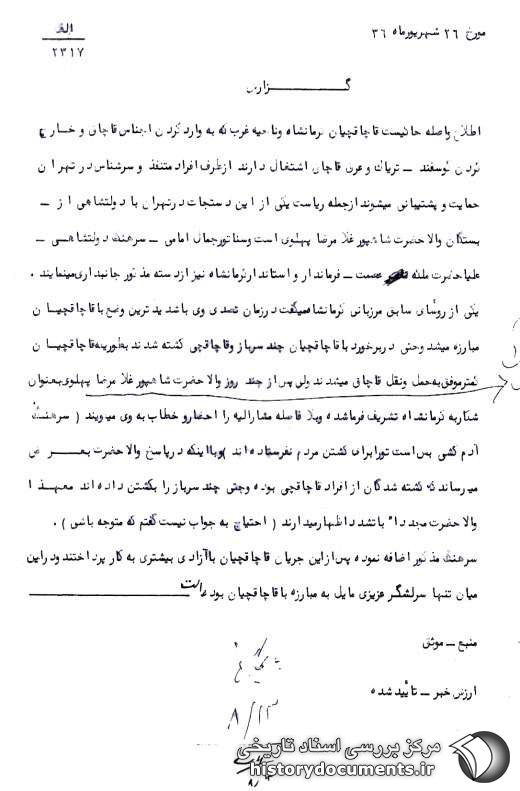 مورخ ۲۶ شهریورماه ۳۶
الف
۲۳۱۷
گـــزارش
اطلاع واصله حاکیست قاچاقچیان کرمانشاه وناحیه غرب که به وارد کردن اجناس قاچاق و خــارج
کردن گوسفند ــ تریاک و عرق قاچاق اشتغال دارند ازطرف افراد متنفذ و سرشناس در تهران
حمایت و پشتیبانی میشوند ازجمله ریاست یکی از این دستجات در تهران با دولتشاهی از ــ
بستگان والا حضرت شاهپور غلا مرضا پهلوی است وسناتور جمال امامی ــ سرهنگ دولتشاهــی ــ
علیا حضرت ملکه عصمت ــ فرماندار و استاندار کرمانشاه نیز از دسته مذکور جانبداری مینمایند .
یکی از روسای سابق مرزبانی کرمانشاه میگفت در زمان تصدی وی باشدیدترین وضع با قاچاقچیــان
مبارزه میشد وحتی در برخورد با قاچاقچیان چند سرباز و قاچاقچی کشته شدند بطوریکه قاچاقچیــان
کمتر موفق به حمل ونقل قاچاق میشدند ولی پس از چند روز والا حضرت شاهپور غلا مرضا پهلوی بعنوان
شکار به کرمانشاه تشریف فرما شده وبلا فاصله مشارالیه را احضار و خطاب به وی میگویند ( سرهنگ
آدم کشی بس است تو را برای کشتن مردم نفرستاده اند ) وبا اینکه در پاسخ والا حضرت بعــرض
میرساند که کشته شدگان از افراد قاچاقچی بوده وحتی چند سرباز را بکشتن داده اند معهــذا
والا حضرت مجددا" با تشدد اظهار میدارند ( احتیاج به جواب نیست گفتم که متوجه باشی ) .
سرهنگ مذکور اضافه نموده پس از این جریان قاچاقچیان با آزادی بیشتری به کار پرداختند و در این
میان تنها سرلشگر عزیزی مایل به مبارزه با قاچاقچیان بوده است
منبع ــ موثق
ارزش خبر ــ تأیید شده
۸/۲۳
مرکز بررسی اسناد تاریخی
historydocuments.ir